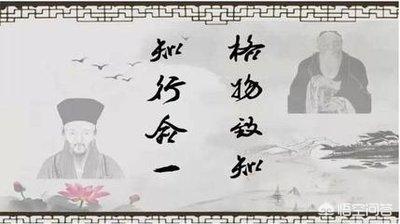 格物致知
知行合一
悟空问答